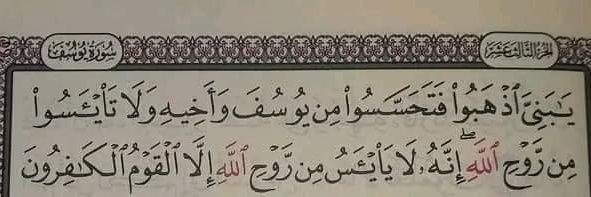 الجزء الثالث عشر سورة يوسف
يَـٰبَنِىَّ ٱذْهَبُوا۟ فَتَحَسَّسُوا۟ مِن يُوسُفَ وَأَخِيهِ وَلَا تَا۟يْـَٔسُوا۟
مِن رَّوْحِ ٱللَّهِ ۖ إِنَّهُۥ لَا يَا۟يْـَٔسُ مِن رَّوْحِ ٱللَّهِ إِلَّا ٱلْقَوْمُ ٱلْكَـٰفِرُونَ